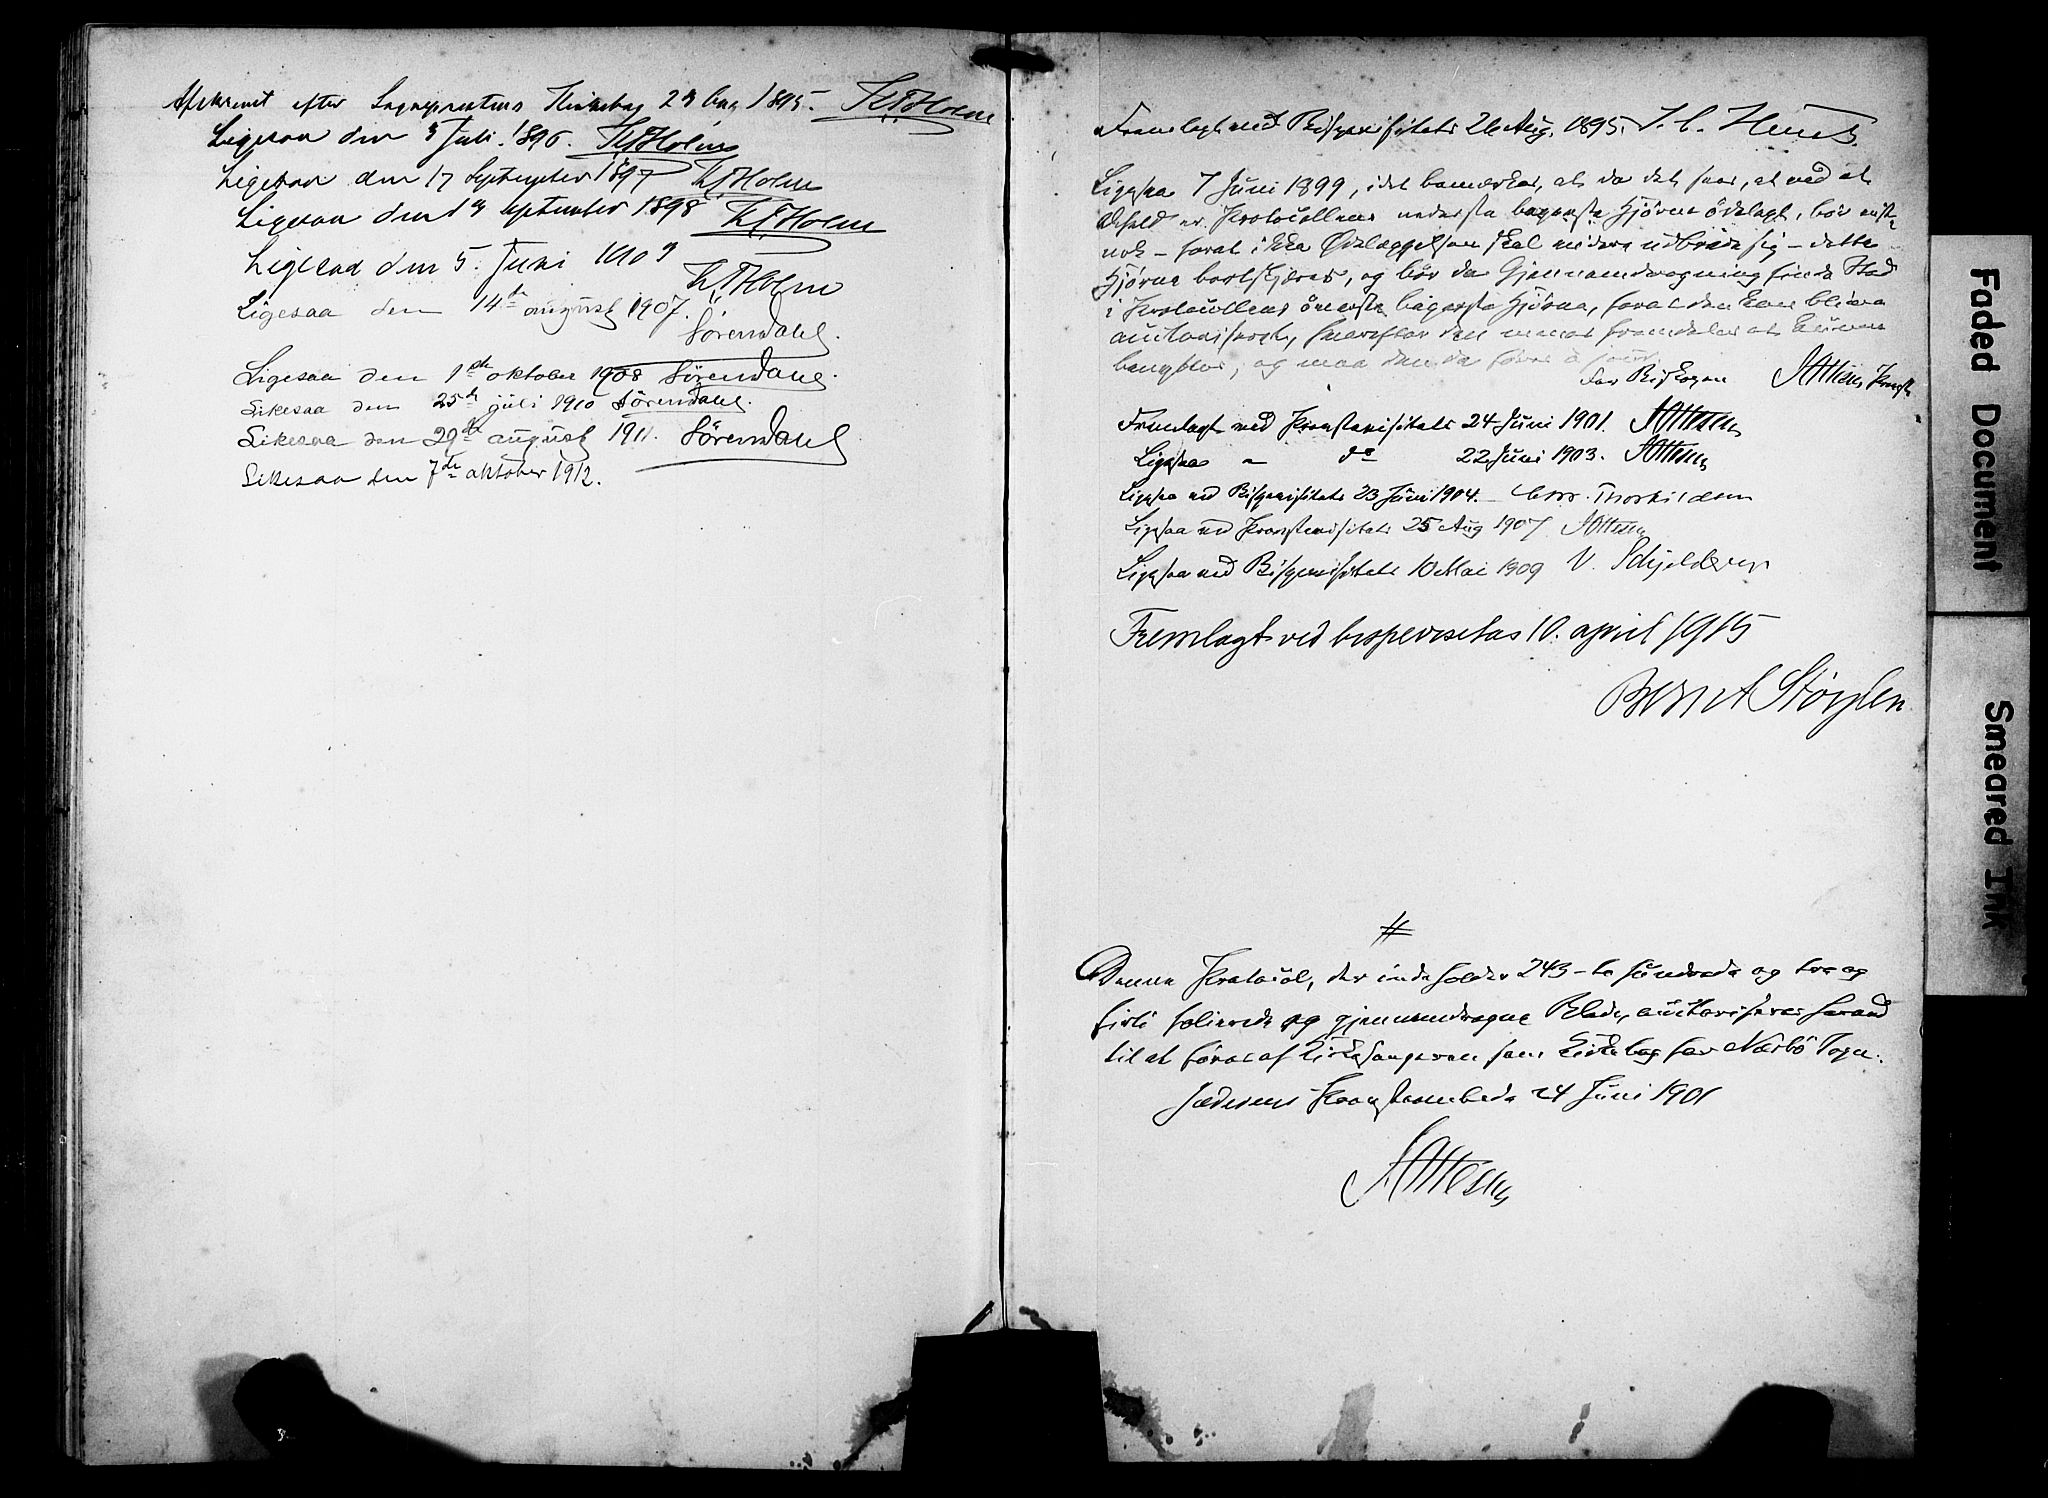 Afskrevet efter Sognepræstens Kirkebog 23 Aug 1895. K. Holm
Ligesaa den 3 Juli 1896. K. Holm
Ligesaa den 17 September 1897 K. Holm
Ligesaa den 13 September 1898 K. Holm
Ligesaa den 5. Juni 1903
K. Holm
Ligesaa den 14de august 1907.
Sörendahl.
Ligesaa den 1ste oktober 1908 Sörendahl.
Likesaa den 25de juli 1910 Sörendahl.
Likesaa den 29de august 1911. Sörendahl
Likesaa den 7de oktober 1912.
Fremlagt ved Bispevisitats 26 Aug. 1895. J. C. Heuch.
Ligesaa 7 Juni 1899, idet bemærkes, at da det saa, at ved et
Uheld er Protocollens nederste bagerste Hjørne ödelagt, bör
nok – forat ikke Ødelæggelsen skal videre udbrede sig – dette
Hjørne bortskjæres, og bör da Gjennemdragning finde Sted
i Protocollens överste bagerste Hjørne, forat den kan blive
autoriseret, hvorefter den menes fremdeles at kunne
benyttes, og maa den da
For Biskopen J Ottesen Provst
Fremlagt ved Provstevisitats 24 Juni 1901. J Ottesen
Ligesaa – do 22 Juni 1903. J Ottesen
Ligesaa ved Bispevisitats 23 Juni 1904. – Chr. Thorkildsen
Ligesaa ved Provstevisitats 25 Aug 1907. J Ottesen
Ligesaa ved Bispevisitats 10 Mai 1909 V. Schjelderup
Fremlagt ved bispevisitas 10. april 1915
Bernt Støylen
#
Denne Protocol, der indeholder 243 – to hundrede og tre og
firti folierede og gjennemdragne Blade, autoriseres herved
til at föres af Kirkesangeren som Kirkebog for Nærbö Sogn.
Jæderens Provstembede 24 Juni 1901
J Ottesen
Faded Document
Smeared Ink